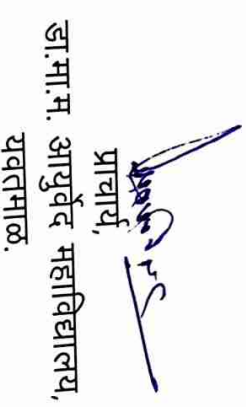 प्राचार्य,
डा.मा.म. आयुर्वेद महाविद्यालय,
यवतमाळ.